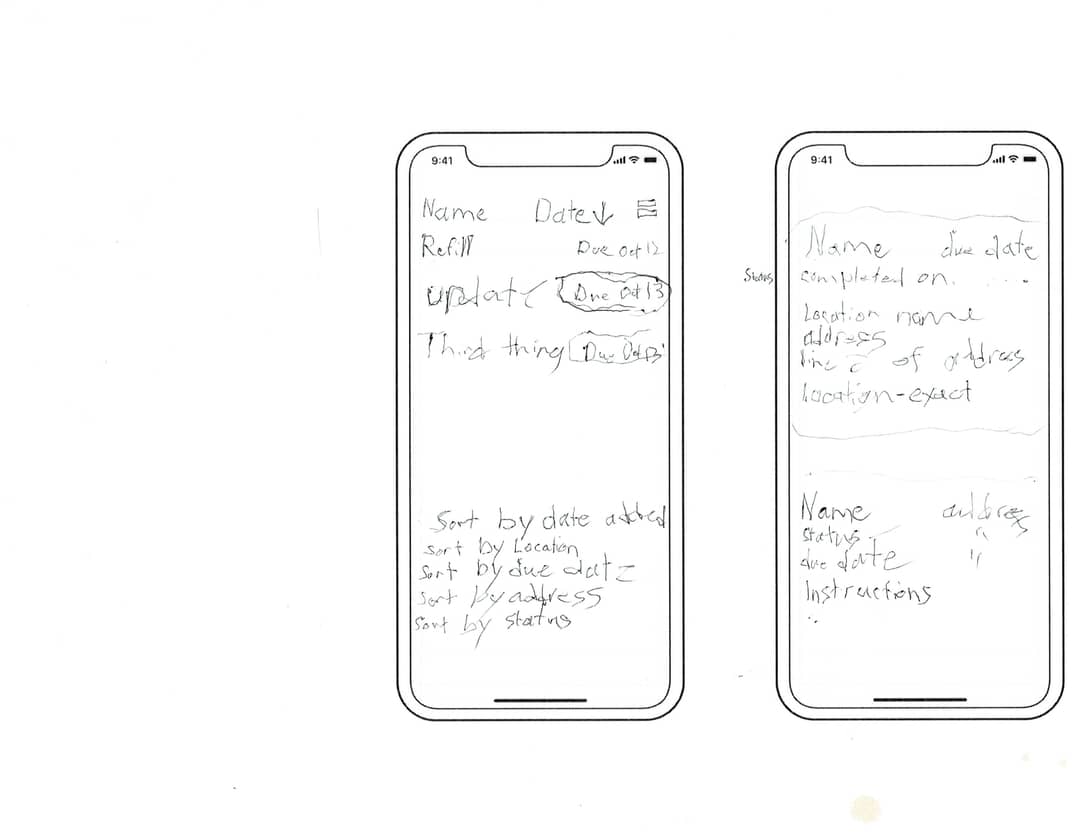 9:41
Name Date↓
Refill Due Oct 12
update Due Oct 13
Third thing Due Oct 13
Sort by date added
Sort by Location
Sort by due date
Sort by address
Sort by status
9:41
Name due date
Status completed on. . . . .
Location name
address
line 2 of address
Location-exact
Name address
status "
due date "
Instructions